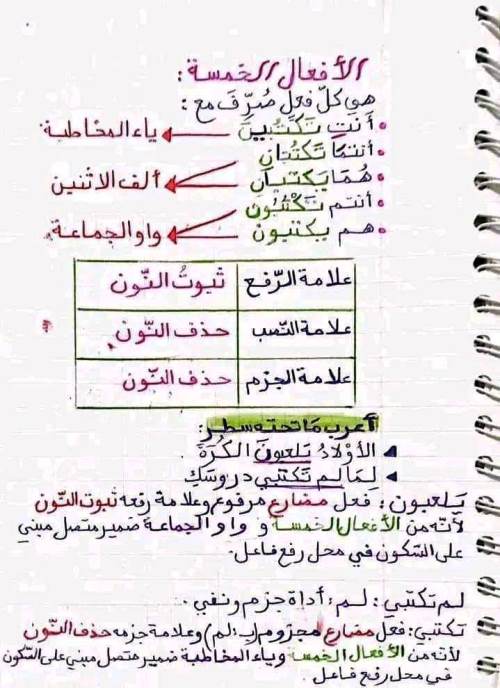 الأفعال الخمسة :
هي كلّ فعل صُرِّفَ مع :
• أنتِ تَكْتُبِينَ ← ياء المخاطبة
• أنتما تَكْتُبَانِ
• هُمَا يَكْتُبَـانِ ← ألف الاثنين
• أنتم تَكْتُبُون
• هم يكتبون ← واو الجماعة
علامة الرّفع ثبوتُ النّون
علامة النّصب حذف النّون
علامة الجزم حذف النّون
أعرب مَا تحته سطر :
◄ الأوْلَادُ يَلعبونَ الكُرَةَ
◄ لمَا لم تَكتبي دروسَكِ
يَلعبون : فعل مضارع مرفوع وعلامة رفعه ثبوت النّون
لأنّه من الأفعال الخمسة و واو الجماعة ضمير متصل مبني
على السّكون في محل رفع فاعل .
لم تكتبي : لم : أداة جزم ونفي .
تكتبي : فعل مضارع مجزوم (بـ : لم) وعلامة جزمه حذف النّون
لأنّه من الأفعال الخمسة وياء المخاطبة ضمير متصل مبني على السّكون
في محل رفع فاعل .